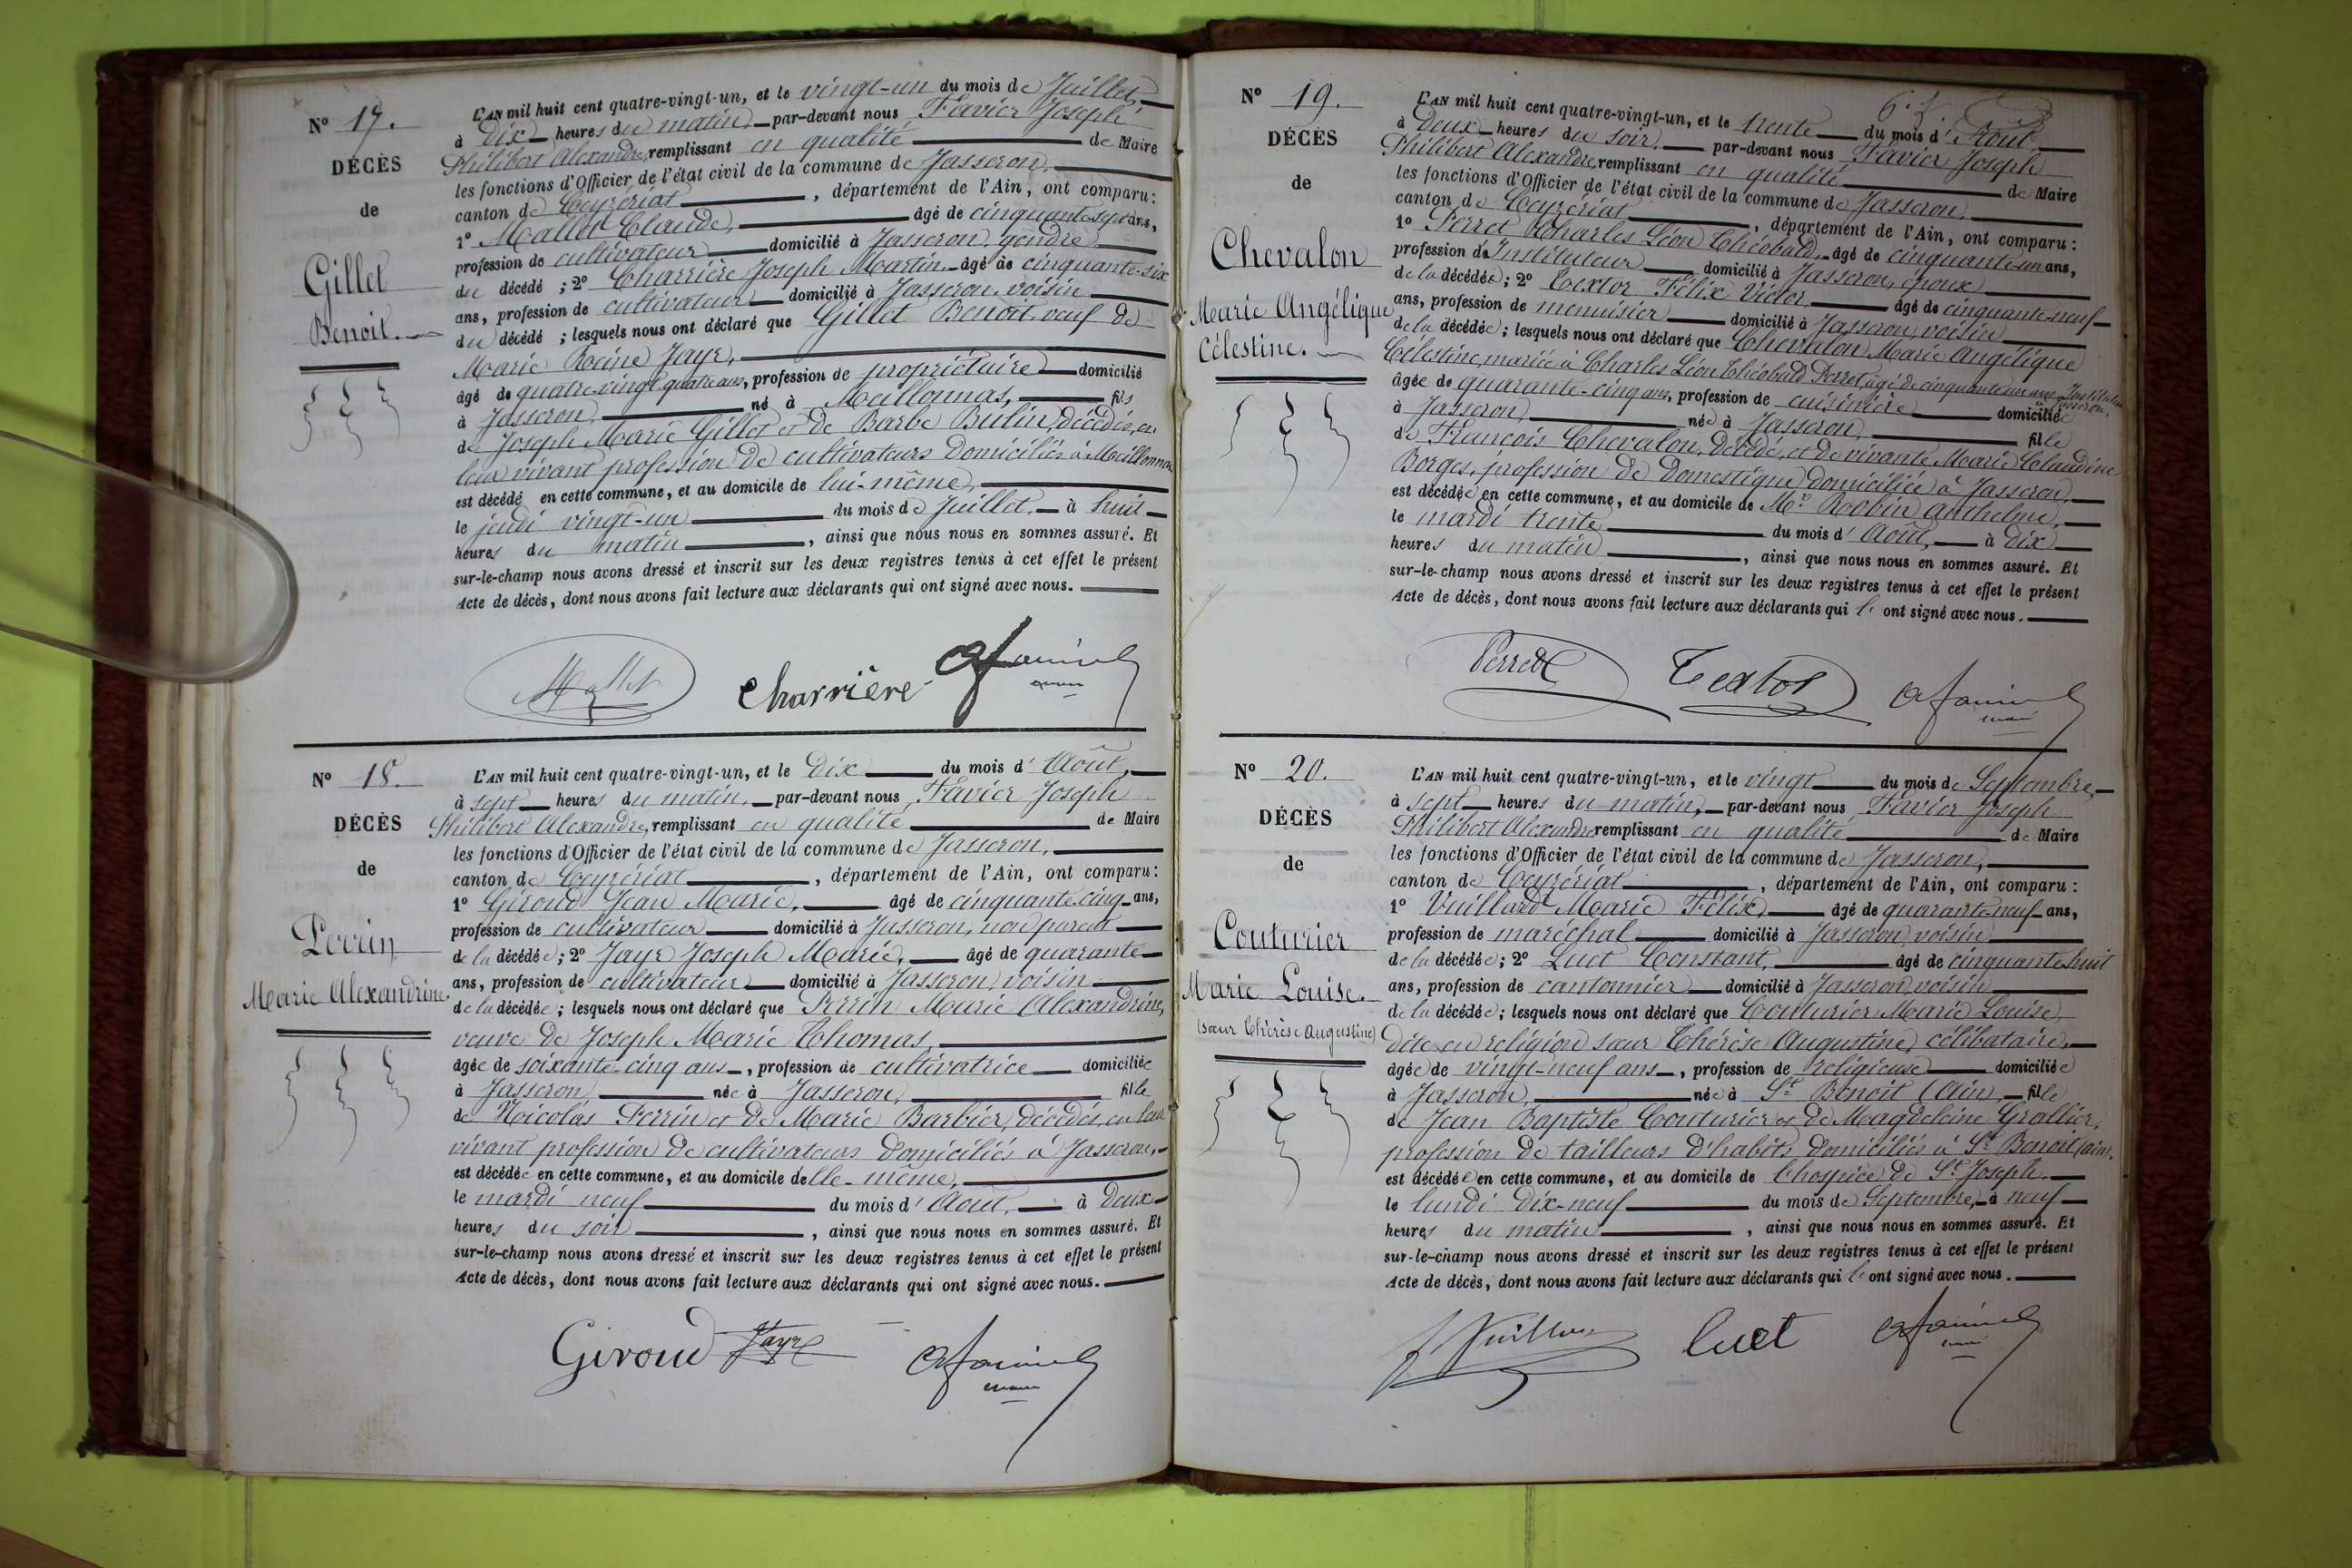 N° 17.
DÉCÈS
de
Gillet
Benoit.
L'AN mil huit cent quatre-vingt-un, et le vingt-un du mois de Juillet,
à dix heures du matin, par-devant nous Favier Joseph
Philibert Alexandre, remplissant en qualité de Maire
les fonctions d'Officier de l'état civil de la commune de Jasseron,
canton de Ceyzériat, département de l'Ain, ont comparu :
1° Mallet Claude, âgé de cinquante-sept ans,
profession de cultivateur domicilié à Jasseron, gendre
du décédé ; 2° Charrière Joseph Martin, âgé de cinquante-six
ans, profession de cultivateur domicilié à Jasseron, voisin
du décédé ; lesquels nous ont déclaré que Gillet Benoit veuf de
Marie Reine Jayr,
âgé de quatre-vingt quatre ans, profession de propriétaire domicilié
à Jasseron, né à Meillonnas, fils
de Joseph Marie Gillet et de Barbe Bulin, décédés, en
leur vivant profession de cultivateurs domiciliés à Meillonnas
est décédé en cette commune, et au domicile de lui-même,
le jeudi vingt-un du mois de Juillet, à huit
heures du matin, ainsi que nous nous en sommes assuré. Et
sur-le-champ nous avons dressé et inscrit sur les deux registres tenus à cet effet le présent
Acte de décès, dont nous avons fait lecture aux déclarants qui ont signé avec nous.
Mallet Charrière
N° 18.
DÉCÈS
de
Perrin
Marie Alexandrine.
L'AN mil huit cent quatre-vingt-un, et le dix du mois d'Août,
à sept heures du matin, par-devant nous Favier Joseph
Philibert Alexandre, remplissant en qualité de Maire
les fonctions d'Officier de l'état civil de la commune de Jasseron,
canton de Ceyzériat, département de l'Ain, ont comparu :
1° Giroud Jean Marie, âgé de cinquante-cinq ans,
profession de cultivateur domicilié à Jasseron, non parent
de la décédée ; 2° Jayr Joseph Marie, âgé de quarante
ans, profession de cultivateur domicilié à Jasseron, voisin
de la décédée ; lesquels nous ont déclaré que Perrin Marie Alexandrine,
veuve de Joseph Marie Thomas,
âgée de soixante-cinq ans, profession de cultivatrice domiciliée
à Jasseron, née à Jasseron, fille
de Nicolas Perrin et de Marie Barbier, décédés, en leur
vivant profession de cultivateurs domiciliés à Jasseron,
est décédée en cette commune, et au domicile d'elle-même,
le mardi neuf du mois d'Août, à deux
heures du soir, ainsi que nous nous en sommes assuré. Et
sur-le-champ nous avons dressé et inscrit sur les deux registres tenus à cet effet le présent
Acte de décès, dont nous avons fait lecture aux déclarants qui ont signé avec nous.
Giroud Jayr
N° 19.
DÉCÈS
de
Chevalon
Marie Angélique
Célestine.
L'AN mil huit cent quatre-vingt-un, et le trente du mois d'Août,
à deux heures du soir, par-devant nous Favier Joseph
Philibert Alexandre, remplissant en qualité de Maire
les fonctions d'Officier de l'état civil de la commune de Jasseron,
canton de Ceyzériat, département de l'Ain, ont comparu :
1° Perret Charles Léon Théobald, âgé de cinquante-un ans,
profession d'Instituteur domicilié à Jasseron, époux
de la décédée ; 2° Textor Félix Victor âgé de cinquante-neuf
ans, profession de menuisier domicilié à Jasseron, voisin
de la décédée ; lesquels nous ont déclaré que Chevalon Marie Angélique
Célestine, mariée à Charles Léon Théobald Perret, âgé de cinquante un ans, Instituteur
à Jasseron.
âgée de quarante-cinq ans, profession de cuisinière domiciliée
à Jasseron, née à Jasseron, fille
de François Chevalon, décédé, et de vivante Marie Claudine
Borges, profession de domestique domiciliée à Jasseron,
est décédée en cette commune, et au domicile de Mr. Robin Anthelme,
le mardi trente du mois d'Août, à dix
heures du matin, ainsi que nous nous en sommes assuré. Et
sur-le-champ nous avons dressé et inscrit sur les deux registres tenus à cet effet le présent
Acte de décès, dont nous avons fait lecture aux déclarants qui l'ont signé avec nous.
Perret Textor
N° 20.
DÉCÈS
de
Couturier
Marie Louise.
(sœur Thérèse Augustine)
L'AN mil huit cent quatre-vingt-un, et le vingt du mois de Septembre,
à sept heures du matin, par-devant nous Favier Joseph
Philibert Alexandre remplissant en qualité de Maire
les fonctions d'Officier de l'état civil de la commune de Jasseron,
canton de Ceyzériat, département de l'Ain, ont comparu :
1° Vuillard Marie Félix, âgé de quarante-neuf ans,
profession de maréchal domicilié à Jasseron, voisin
de la décédée ; 2° Luct Constant, âgé de cinquante-huit
ans, profession de cantonnier domicilié à Jasseron, voisin
de la décédée ; lesquels nous ont déclaré que Couturier Marie Louise,
dite en religion sœur Thérèse Augustine, célibataire,
âgée de vingt-neuf ans, profession de religieuse domiciliée
à Jasseron, née à St Benoit (Ain), fille
de Jean Baptiste Couturier et de Magdeleine Grallier,
profession de tailleurs d'habits, domiciliés à St Benoit (ain),
est décédée en cette commune, et au domicile de l'hospice de St Joseph,
le lundi dix-neuf du mois de Septembre, à neuf
heures du matin, ainsi que nous nous en sommes assuré. Et
sur-le-champ nous avons dressé et inscrit sur les deux registres tenus à cet effet le présent
Acte de décès, dont nous avons fait lecture aux déclarants qui l'ont signé avec nous.
Vuillard Luct